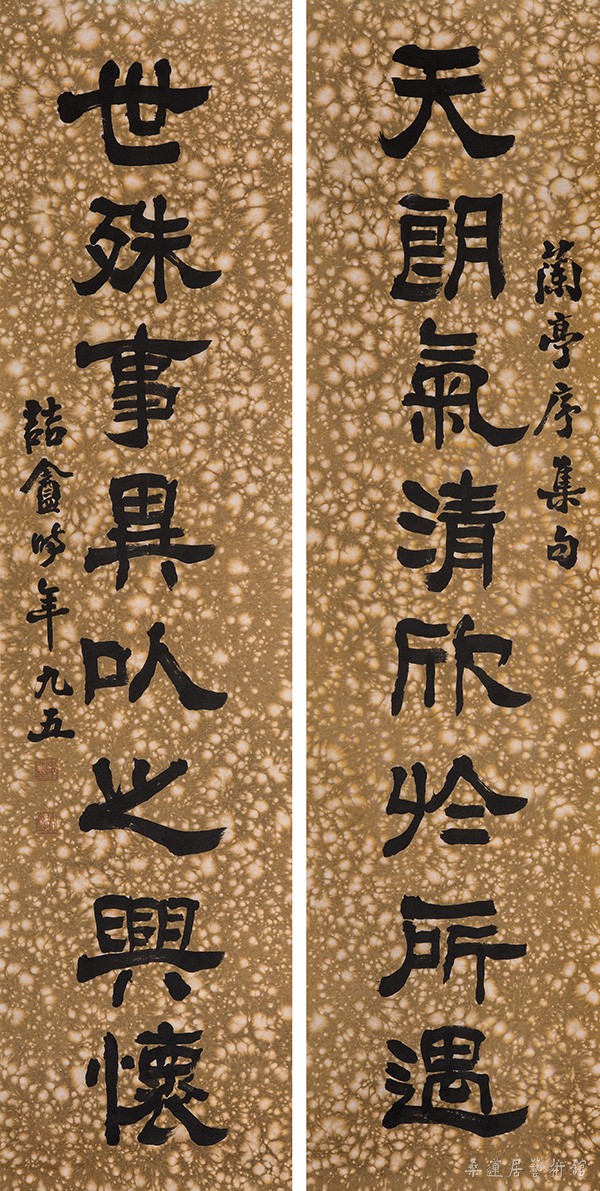 蘭亭序集句
天朗氣清欣於所遇
世殊事異以之興懷
喆盦時年九五
桑蓮居藝術館